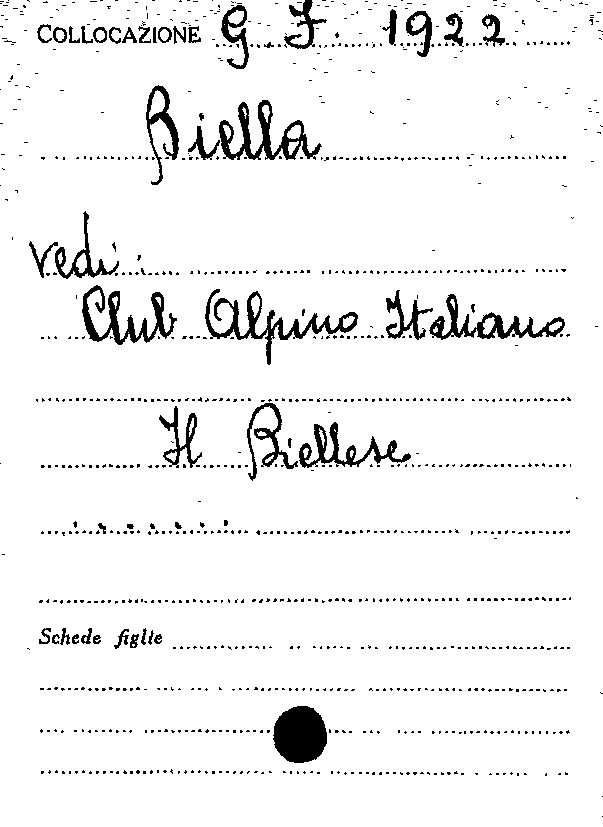 COLLOCAZIONE G. I. 1922
Biella
vedi:
Club Alpino Italiano
Il Biellese
.......
Schede figlie